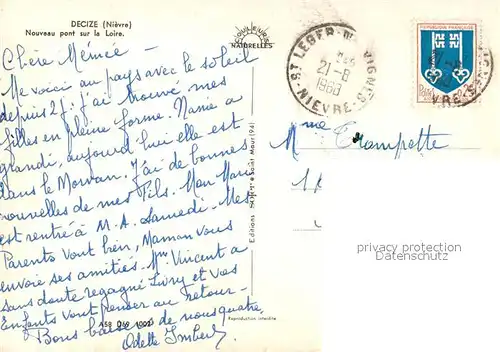 DECIZE (Nièvre)
Nouveau pont sur la Loire.
COULEURS
NATURELLES
Chère Mémée -
Me voici au pays avec le soleil
depuis 2 j. j'ai trouvé mes
filles en pleine forme. Marie a
grandi, aujourd'hui elle est
dans le Morvan. J'ai de bonnes
nouvelles de mes Fils. Mon Mari
est rentré à M. A. Samedi. Mes
Parents vont bien, Maman vous
envoie ses amitiés. Mme Vincent a
sans doute regagné Ivry et vos
Enfants vont penser au retour -
Bons baisers de nous quatre.
Odette Imbert
A58 D58 1002
Editions Saint Maur (94)
Reproduction interdite
ST LEGER DES VIGNES
21-8
NIEVRE
REPUBLIQUE FRANÇAISE
VRE
Mme Trompette
protection copyright
Datenschutz